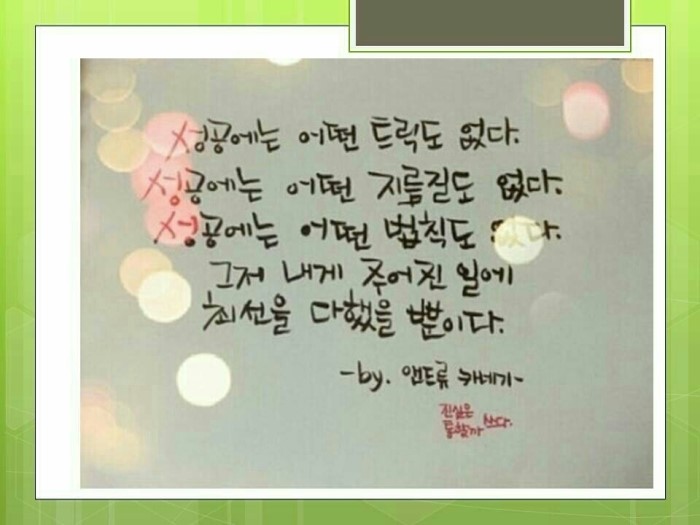 성공에는 어떤 트릭도 없다.
성공에는 어떤 지름길도 없다.
성공에는 어떤 법칙도 없다.
그저 내게 주어진 일에
최선을 다했을 뿐이다.
-by. 앤드류 카네기-
진심은
통할까 쓰다.